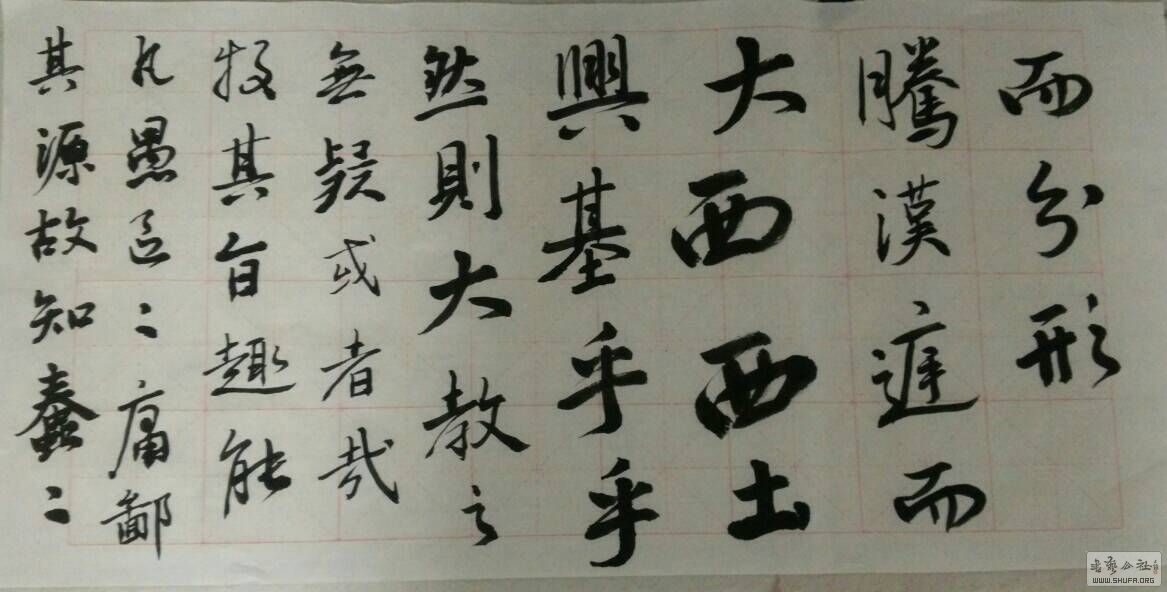 而分形
騰漢庭而
大西西土
興基乎乎
然則大教之
無疑或者哉
投其旨趣能
凡愚區〻庸鄙
其源故知蠢〻
书艺公社
WWW.SHUFA.ORG